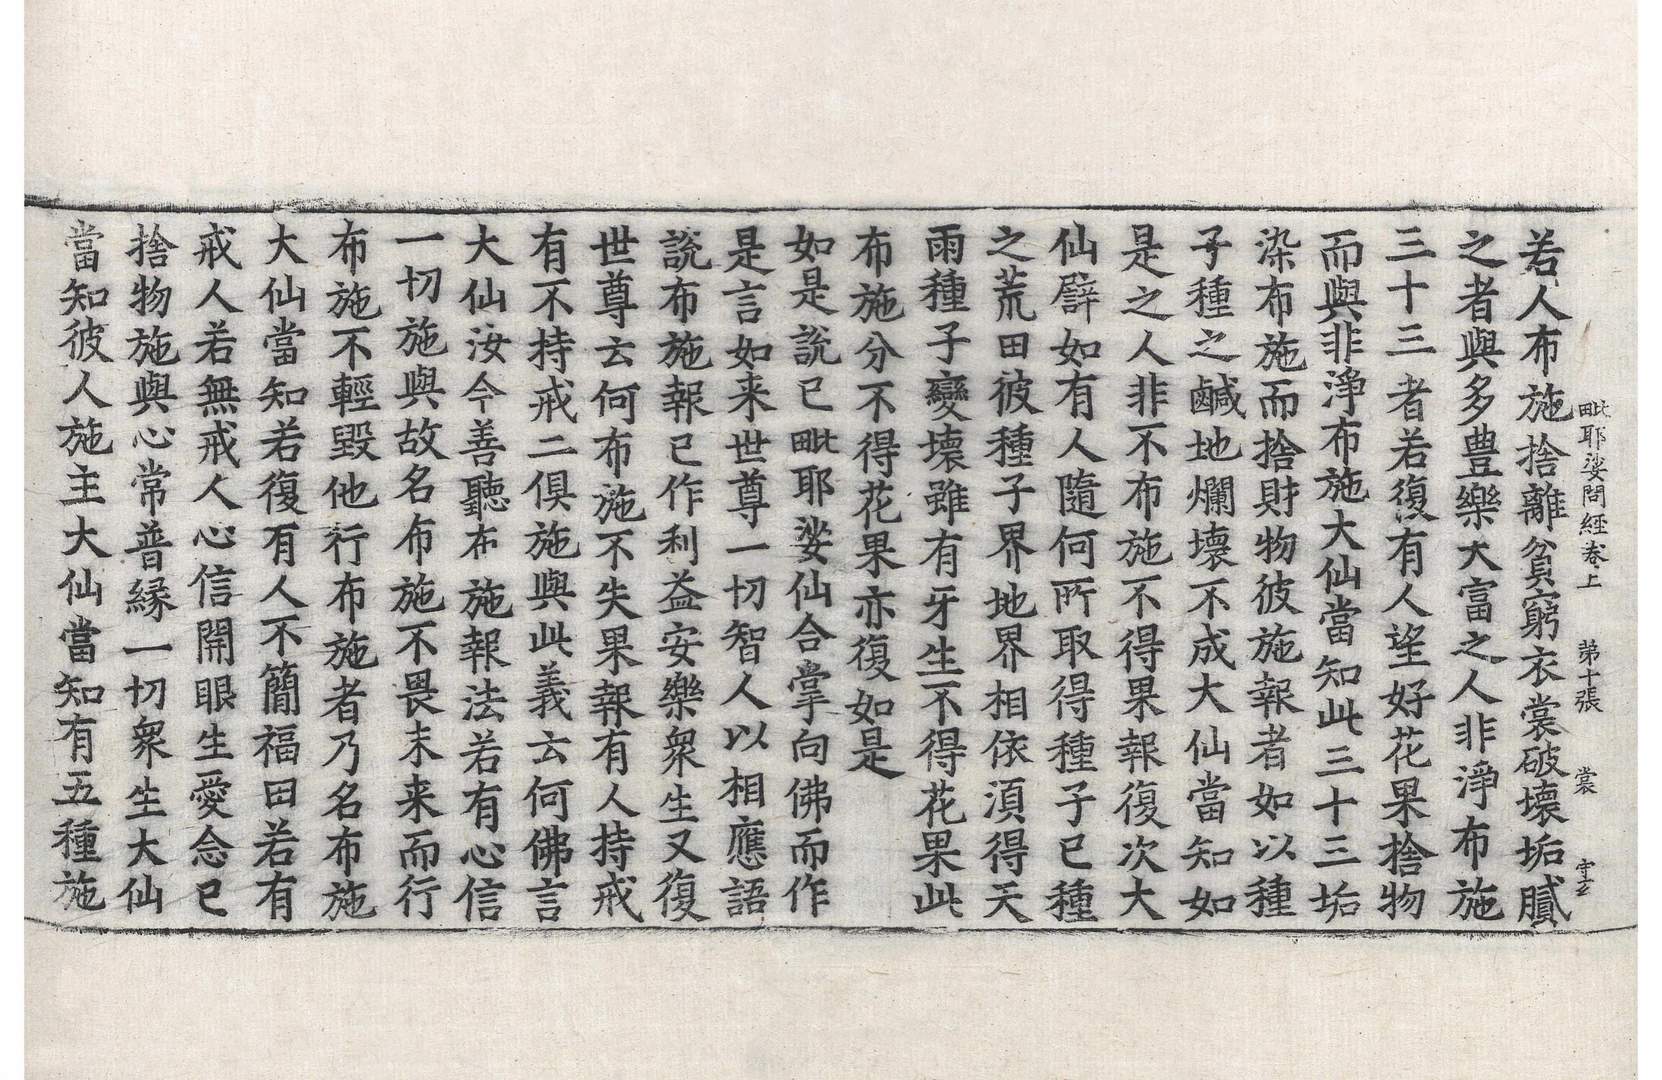 毗耶娑問經卷上　第十張　裳　守玄
若人布施捨離貧窮衣裳破壞垢膩
之者與多豊樂大富之人非淨布施
三十三者若復有人望好花果捨物
而與非淨布施大仙當知此三十三垢
染布施而捨財物彼施報者如以種
子種之鹹地爛壞不成大仙當知如
是之人非不布施不得果報復次大
仙譬如有人隨何所取得種子已種
之荒田彼種子界地界相依湏得天
雨種子變壞雖有牙生不得花果此
布施分不得花果亦復如是
如是說已毗耶娑仙合掌向佛而作
是言如来世尊一切智人以相應語
說布施報已作利益安樂衆生又復
世尊云何布施不失果報有人持戒
有不持戒二俱施與此義云何佛言
大仙汝今善聽布施報法若有心信
一切施與故名布施不畏未来而行
布施不輕毀他行布施者乃名布施
大仙當知若復有人不簡福田若有
戒人若無戒人心信開眼生愛念已
捨物施與心常普緣一切衆生大仙
當知彼人施主大仙當知有五種施